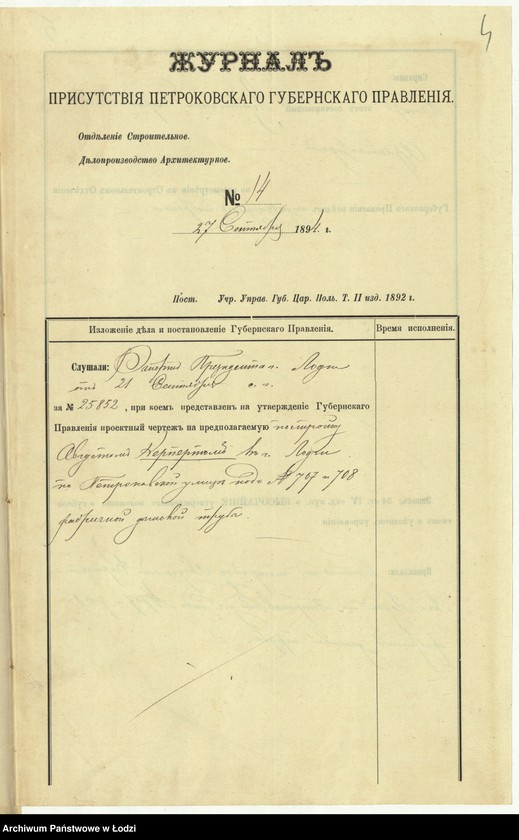 4
ЖУРНАЛЪ
ПРИСУТСТВІЯ ПЕТРОКОВСКАГО ГУБЕРНСКАГО ПРАВЛЕНІЯ.
Отдѣленіе Строительное.
Дѣлопроизводство Архитектурное.
№ 14
27 Сентября 1894 г.
Пост. Учр. Управ. Губ. Цар. Поль. Т. II изд. 1892 г.
Изложеніе дѣла и постановленіе Губернскаго Правленія.
Время исполненія.
Слушали: Рапортъ Президента г. Лодзи
отъ 21 Сентября с. г.
за № 25852, при коемъ представленъ на утвержденіе Губернскаго
Правленія проектный чертежъ на предполагаемую постройку
Августомъ въ г. Лодзи
по Петроковской улицѣ подъ № 707 и 708
фабричной дымовой трубы.
Archiwum Państwowe w Łodzi